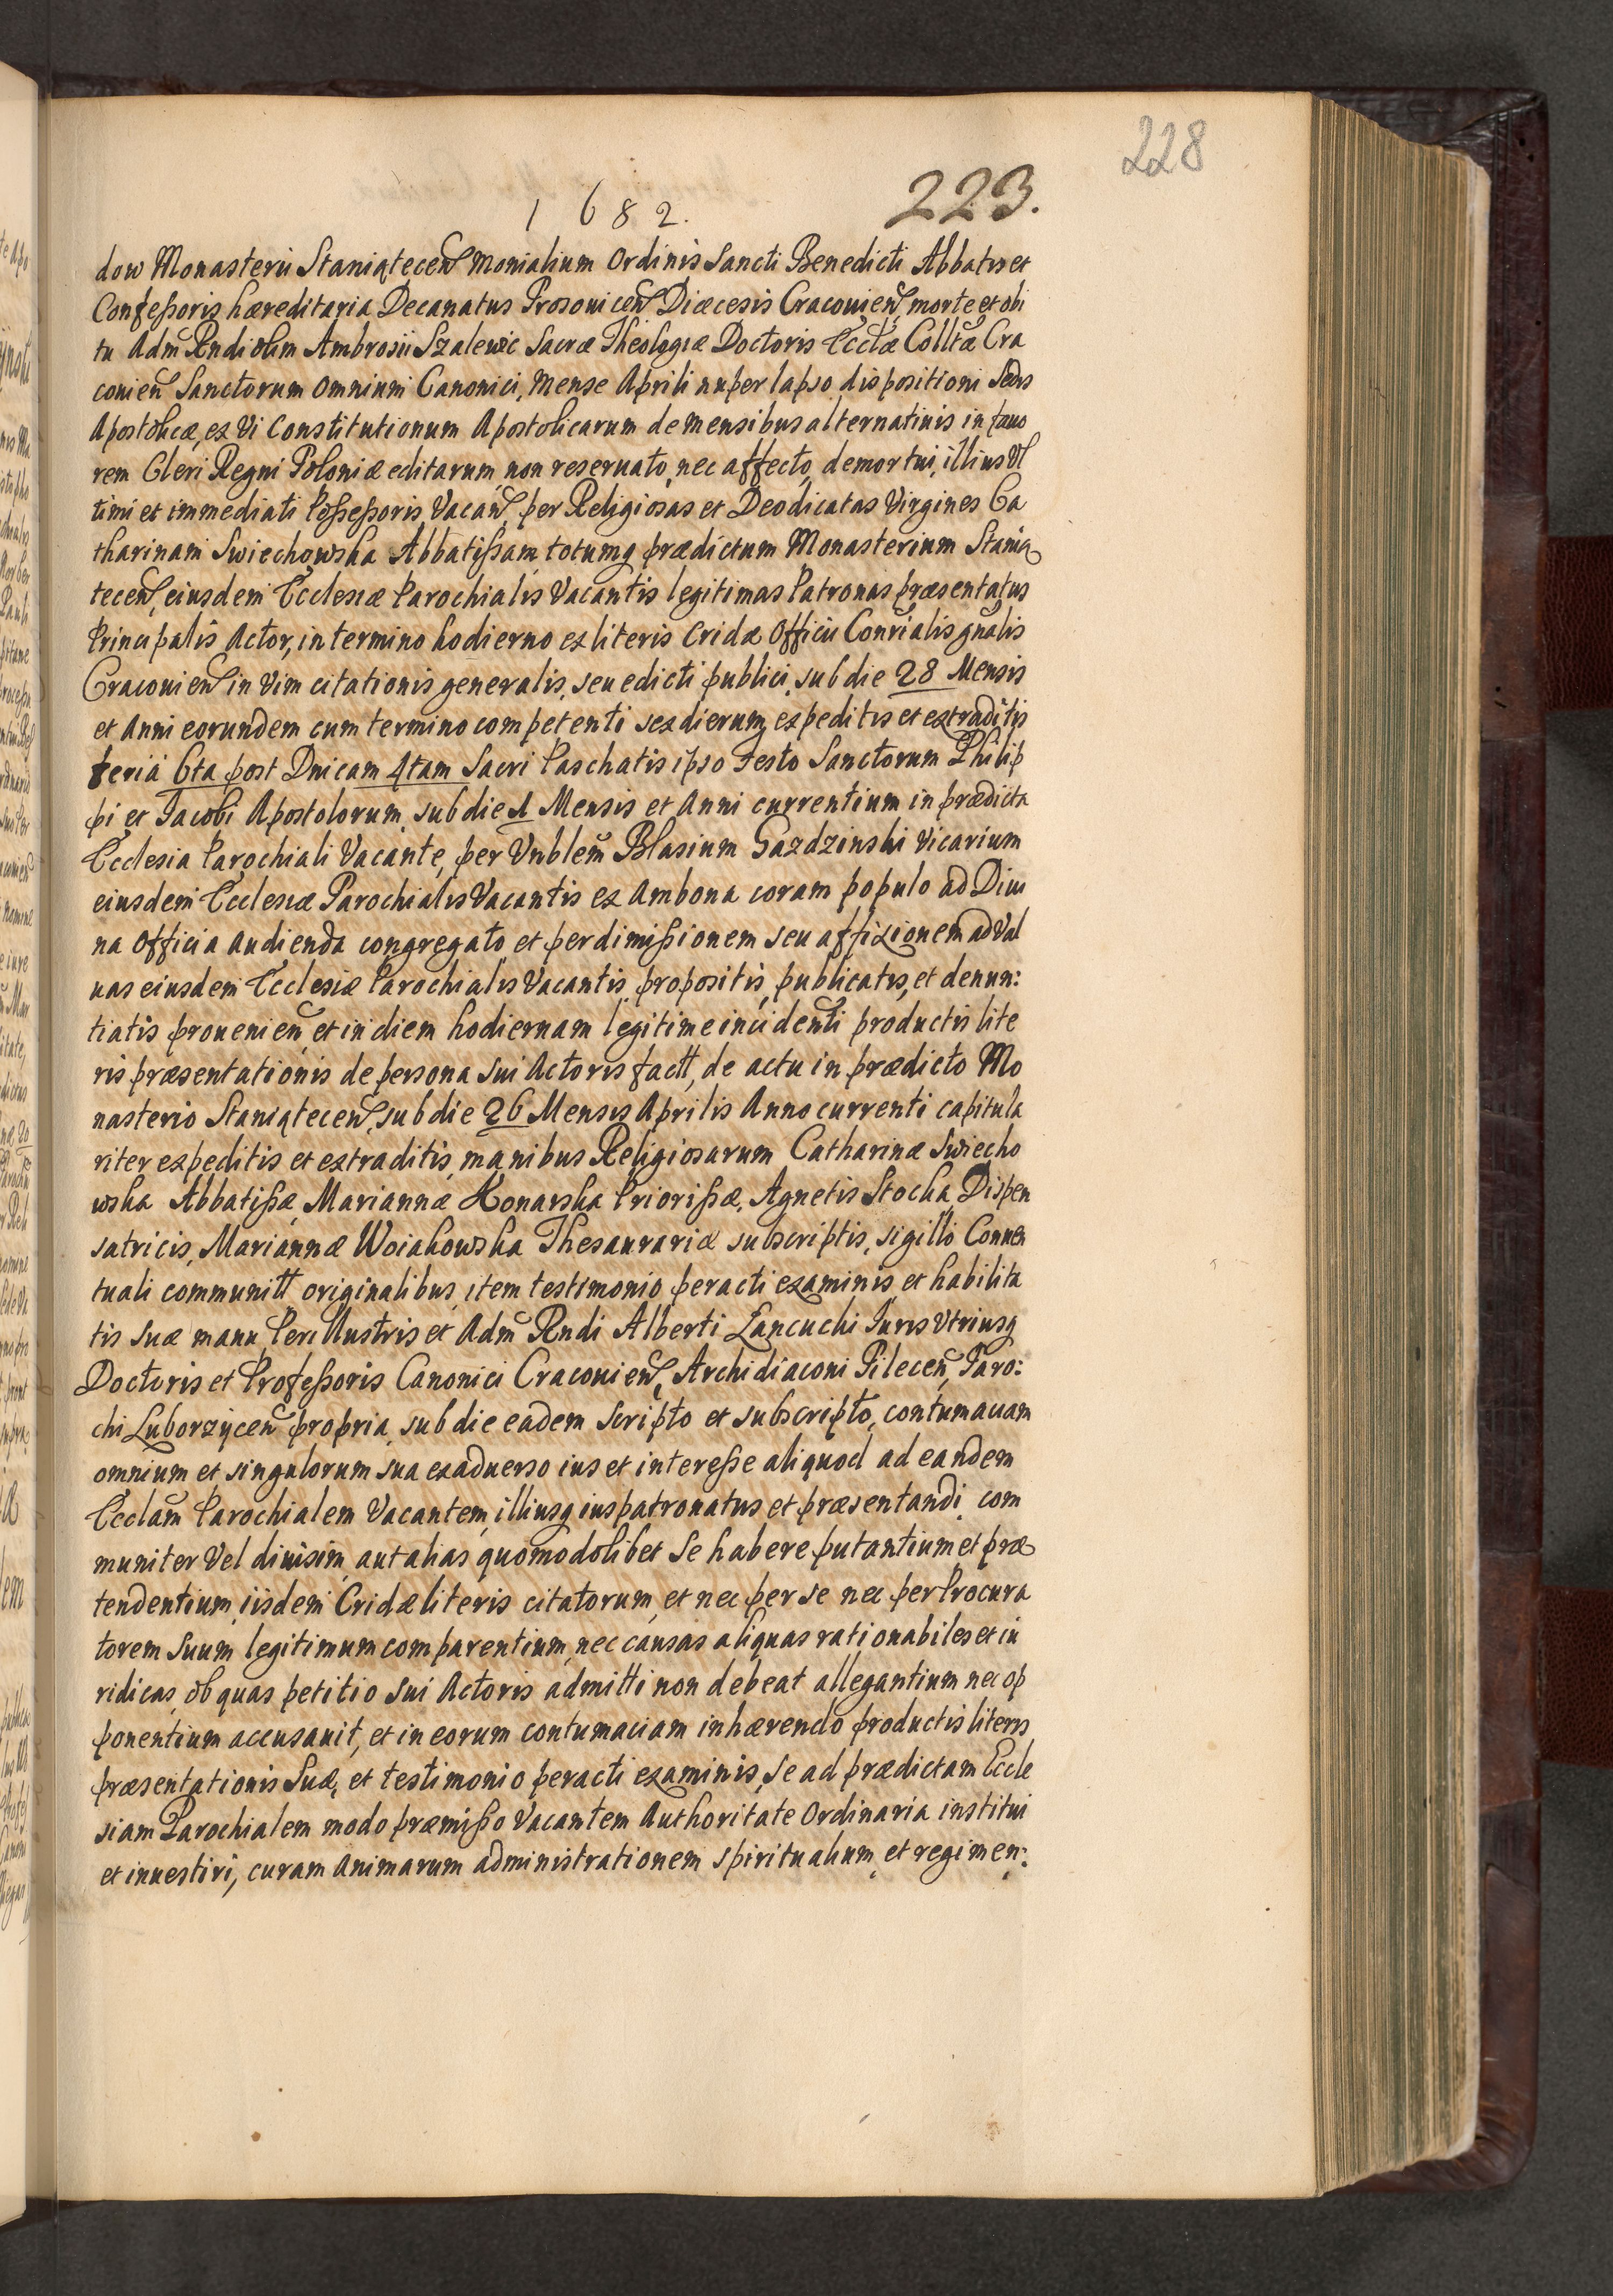 228
1682.
223.
dow Monasterii Staniątecen̄ Monialium Ordinis Sancti Benedicti Abbatis et
Confeßoris hæreditaria Decanatus Prosovicen̄ Diæcesis Cracovien̄, morte et obi
tu Adm̄ Rndi olim Ambrosii Szalewic Sacræ Theologiæ Doctoris Eccl̄æ Collt̄æ Cra
covien̄ Sanctorum Omnium Canonici, Mense Aprili nuper lapso dispositioni Sedis
Apostolicæ, ex Vi Constitutionum Apostolicarum de mensibus alternativis in favo
rem Cleri Regni Poloniæ editarum, non reservato, nec affecto, demortui, illius Vl
timi et immediati Poßeßoris, Vacan̄, per Religiosas et Deodicatas Virgines Ca
tharinam Swiechowska Abbatißam, totumq prædictum Monasterium Stanią
tecen̄, eiusdem Ecclesiæ Parochialis Vacantis legitimas Patronas præsentatus
Principalis Actor, in termino hodierno ex literis Cridæ Officii Con̄rialis gn̄alis
Cracovien̄ in Vim citationis generalis, seu edicti publici, sub die 28 Mensis
et Anni eorundem cum termino competenti sex dierum, expeditis et extraditis
feriâ 6ta post Dnicam 4tam Sacri Paschatis ipso Festo Sanctorum Philip
pi et Iacobi Apostolorum, sub die 1 Mensis et Anni currentium in prædicta
Ecclesia Parochiali Vacante, per Vnblem̄ Blasium Gazdzinski Vicarium
eiusdem Ecclesiæ Parochialis Vacantis ex Ambona coram populo ad Divi
na Officia audienda congregato et per dimißionem seu affixionem ad Val
vas eiusdem Ecclesiæ Parochialis Vacantis, propositis, publicatis, et denun:
tiatis provenien̄, et in diem hodiernam legitime incidenti productis lite
ris præsentationis de persona sui Actoris factt, de actu in prædicto Mo
nasterio Staniątecen̄, sub die 26 Mensis Aprilis Anno currenti capitula
riter expeditis et extraditis, manibus Religiosarum Catharinæ Swiecho
wska Abbatißæ, Mariannæ Konarska Priorißæ, Agnetis Stocka, Dispen
satricis, Mariannæ Woiakowska Thesaurariæ subscriptis, sigillo Conven
tuali communitt originalibus, item testimonio peracti examinis, et habilita
tis suæ manu Perillustris et Adm̄ Rndi Alberti Łancucki Iuris Vtriusq
Doctoris et Profeßoris Canonici Cracovien̄, Archidiaconi Pilecen̄, Paro:
chi Luborzÿcen̄ propria, sub die eadem scripto et subscripto, contumaciam
omnium et singulorum sua ex adverso ius et intereße aliquod ad eandem
Eccl̄am Parochialem Vacantem, illiusq ius patronatus et præsentandi, com
muniter Vel divisim, aut alias quomodolibet Se habere putantium, et præ
tendentium, iisdem Cridæ literis citatorum, et nec per se nec per Procura
torem Suum legitimum comparentium, nec causas aliquas rationabiles et iu
ridicas, ob quas petitio sui Actoris admitti non debeat allegantium nec op
ponentium accusavit, et in eorum contumaciam inhærendo productis literis
præsentationis Suæ, et testimonio peracti examinis, Se ad prædictam Eccle
siam Parochialem modo præmißo Vacantem Authoritate Ordinaria institui
et investiri, curam Animarum administrationem spiritualium, et regimen: